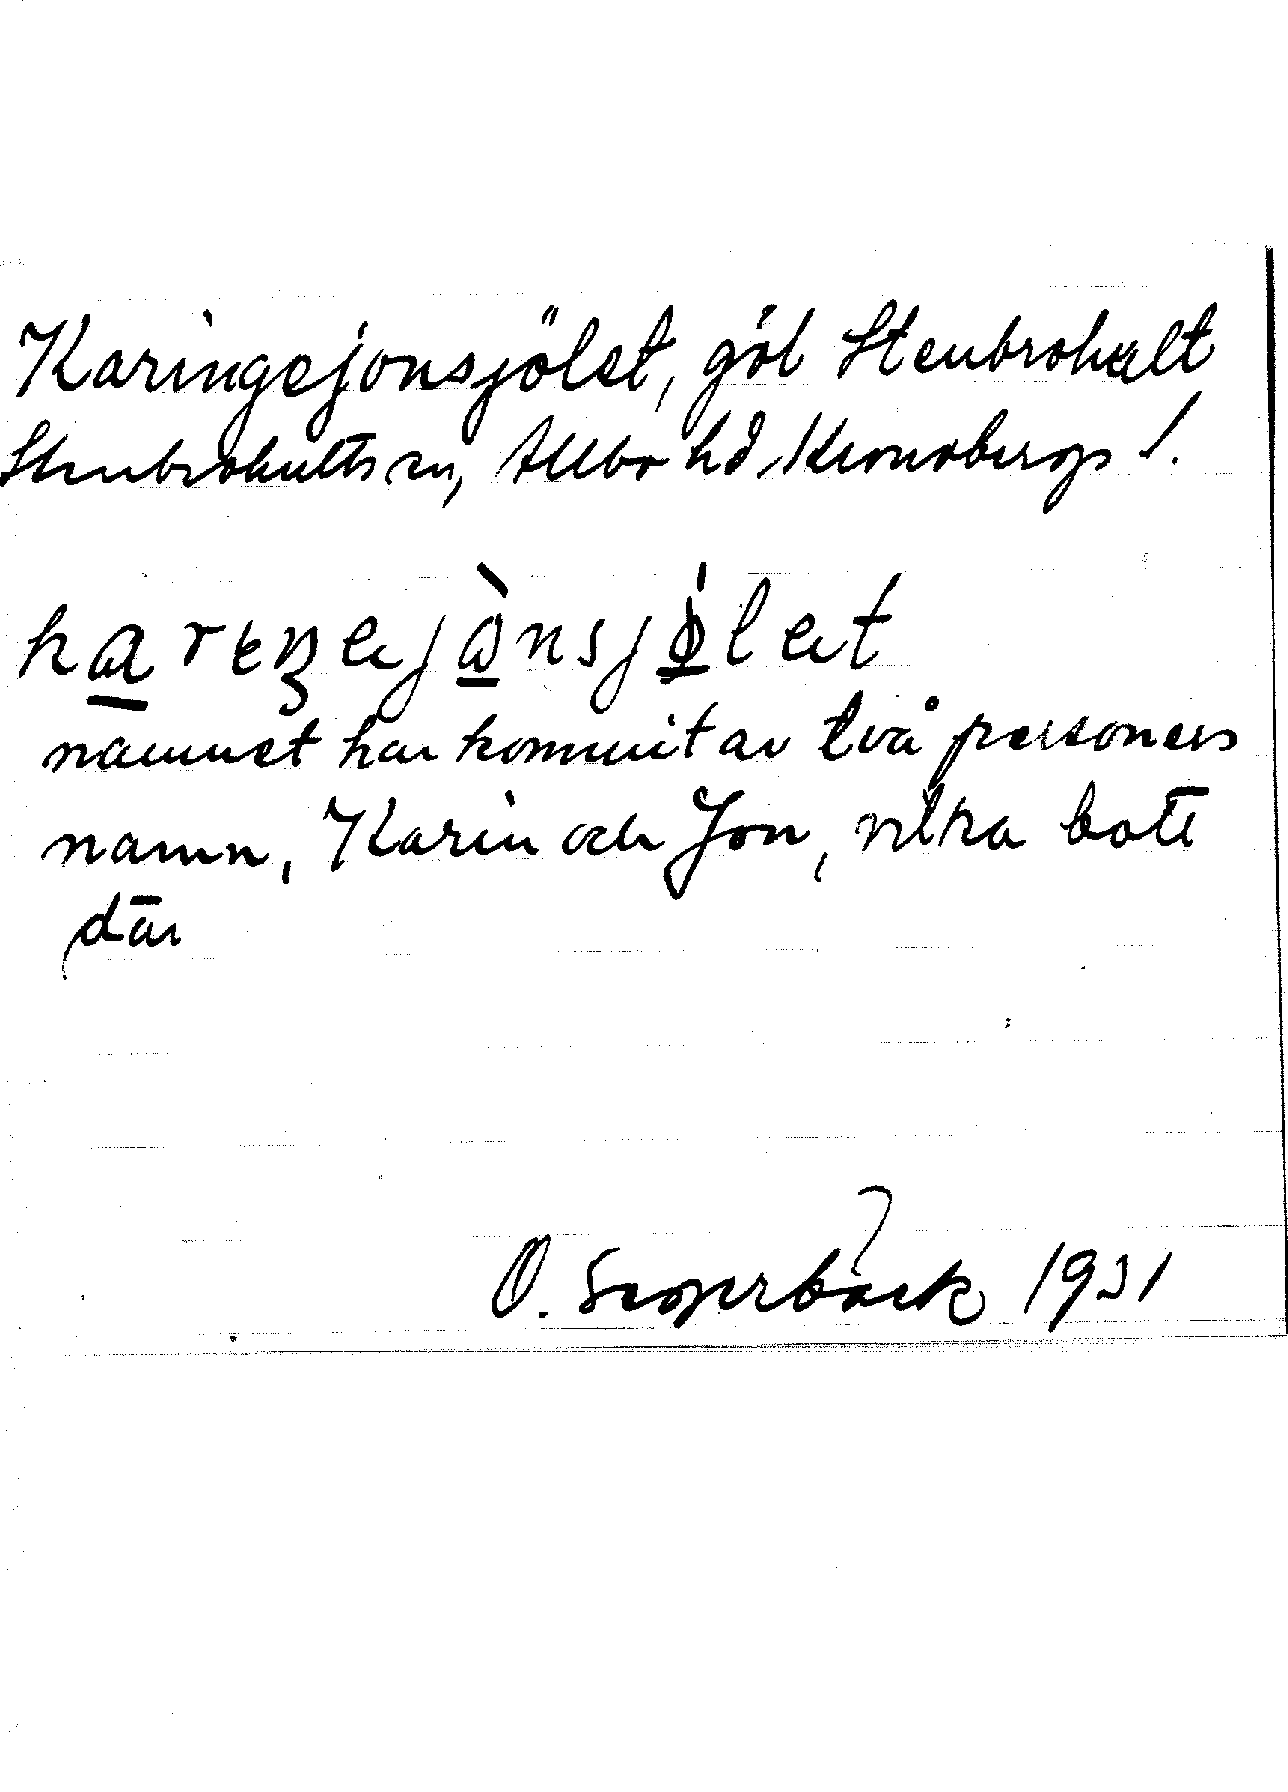 Karingejonsjölet, göl Stenbrohult
Stenbrohults sn, Allbo hd, Kronobergs l.
karıŋejònsjø̀let
namnet har kommit av två personers
namn, Karin och Jon, vilka bott
där
O. 1931